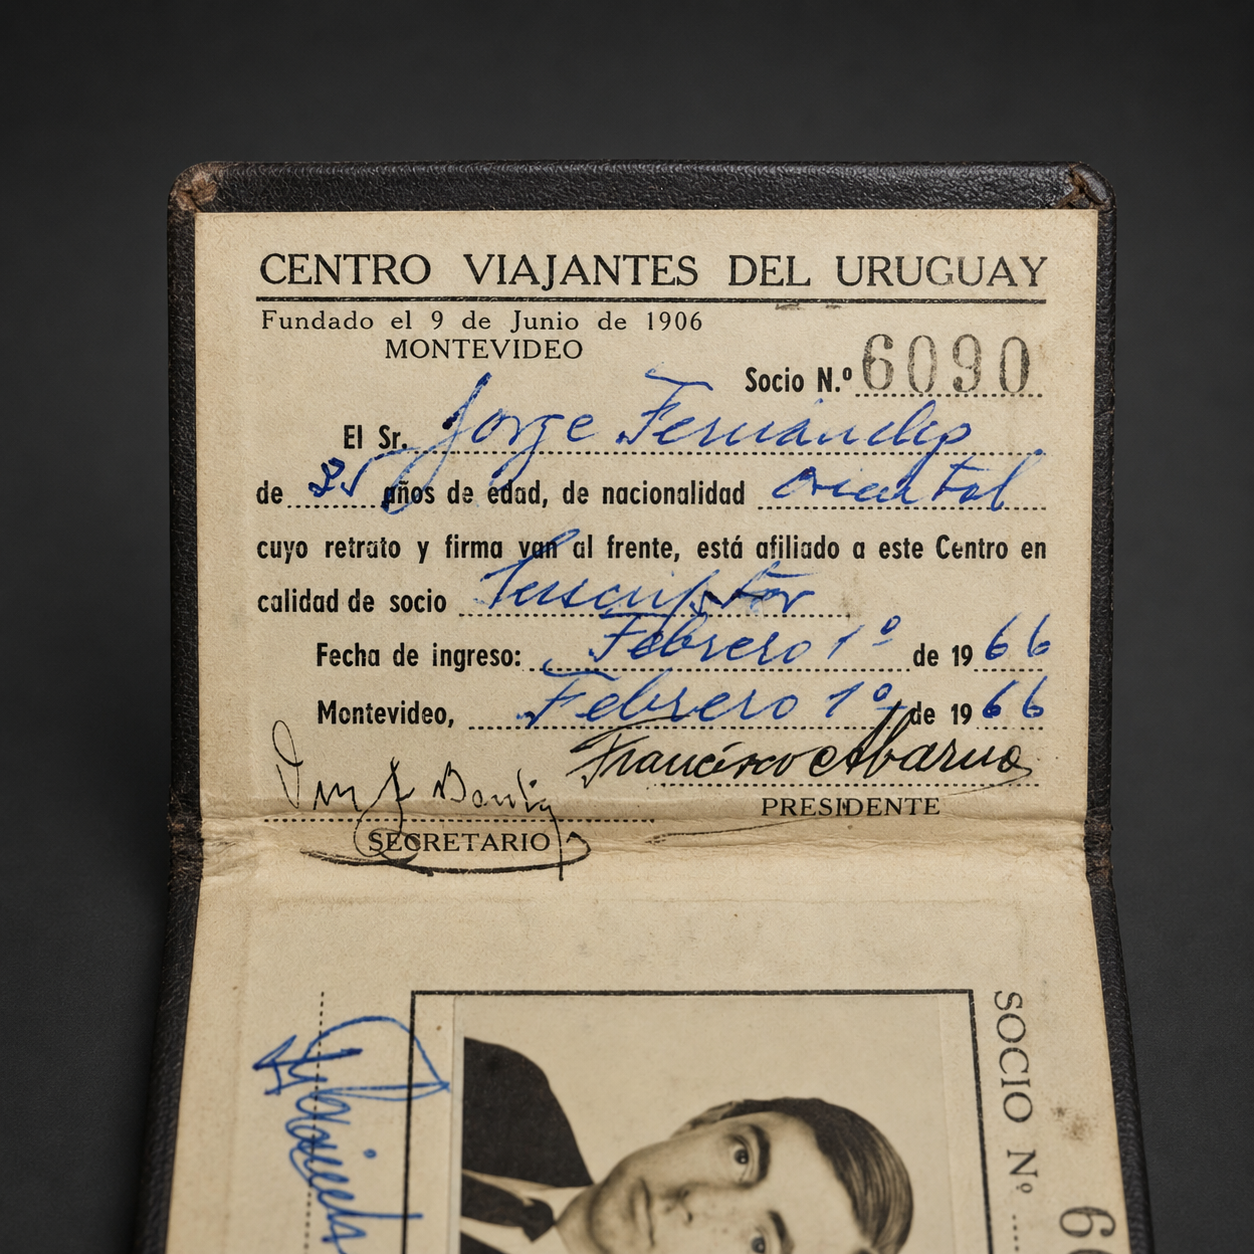 CENTRO VIAJANTES DEL URUGUAY
Fundado el 9 de Junio de 1906
MONTEVIDEO
Socio N.º 6090
El Sr. Jorge Fernández
de 35 años de edad, de nacionalidad Oriental
cuyo retrato y firma van al frente, está afiliado a este Centro en
calidad de socio Suscriptor
Fecha de ingreso: Febrero 1º de 1966
Montevideo, Febrero 1º de 1966
Francisco Abarno
PRESIDENTE
SECRETARIO
SOCIO Nº 6